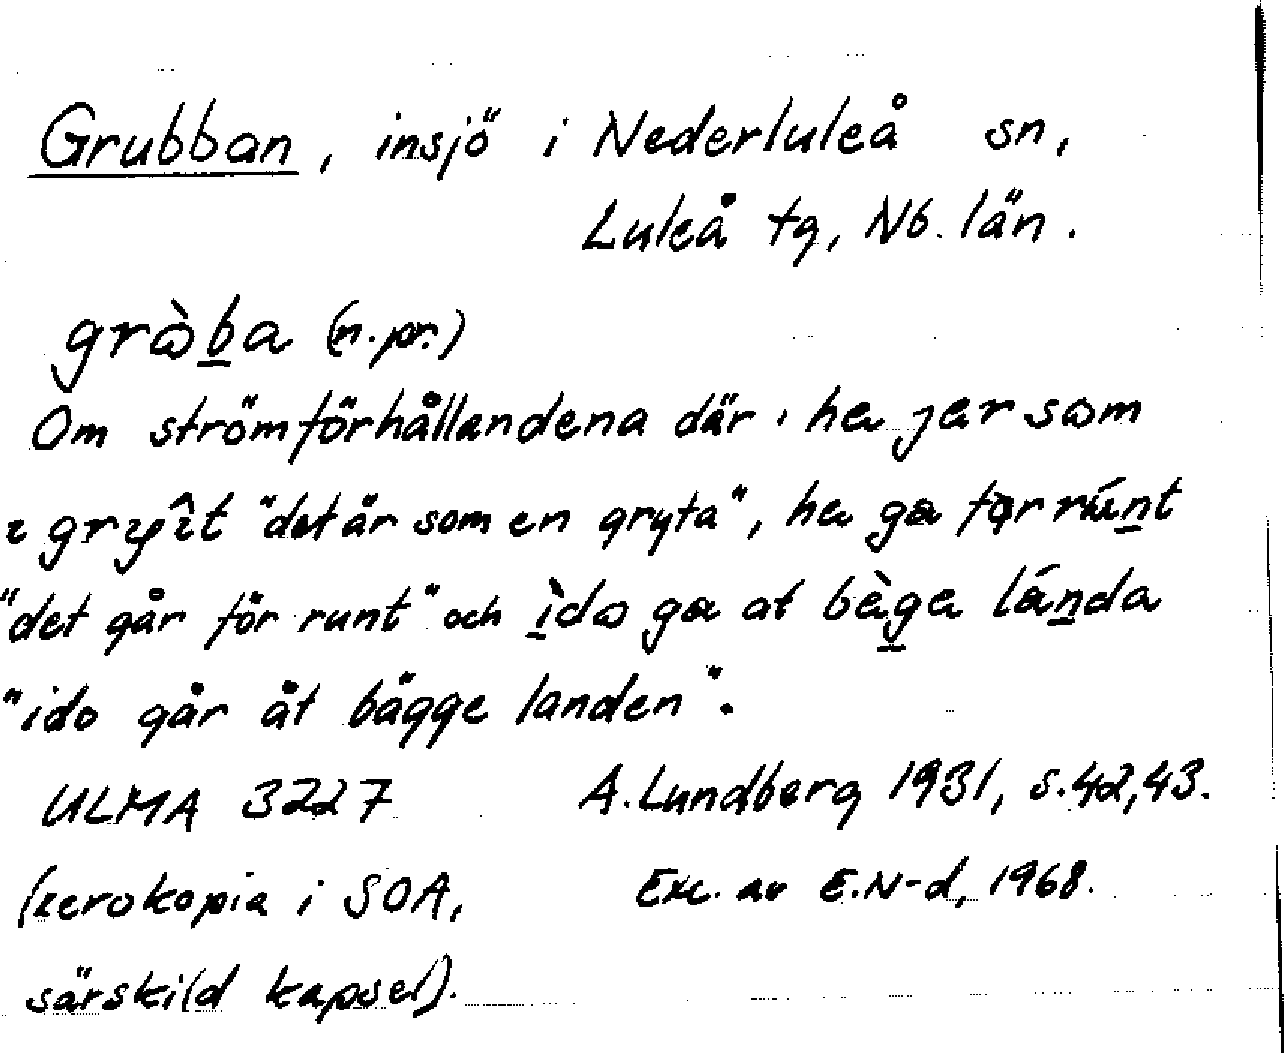 Grubban, insjö i Nederluleå sn,
Luleå tg, Nb. län.
grὼb̲a (n.pr.)
Om strömförhållandena där: ha jar sωm
ɿ gryît "det är som en gryta", ha ga fɷr rún̲t
"det går för runt" och ì̲dω ga at bèg̲a lán̲da
"ido går åt bägge landen".
ULMA 3227 A. Lundberg 1931, s. 42, 43.
(xerokopia i SOA, Exc. av E.N-d, 1968.
särskild kapsel).